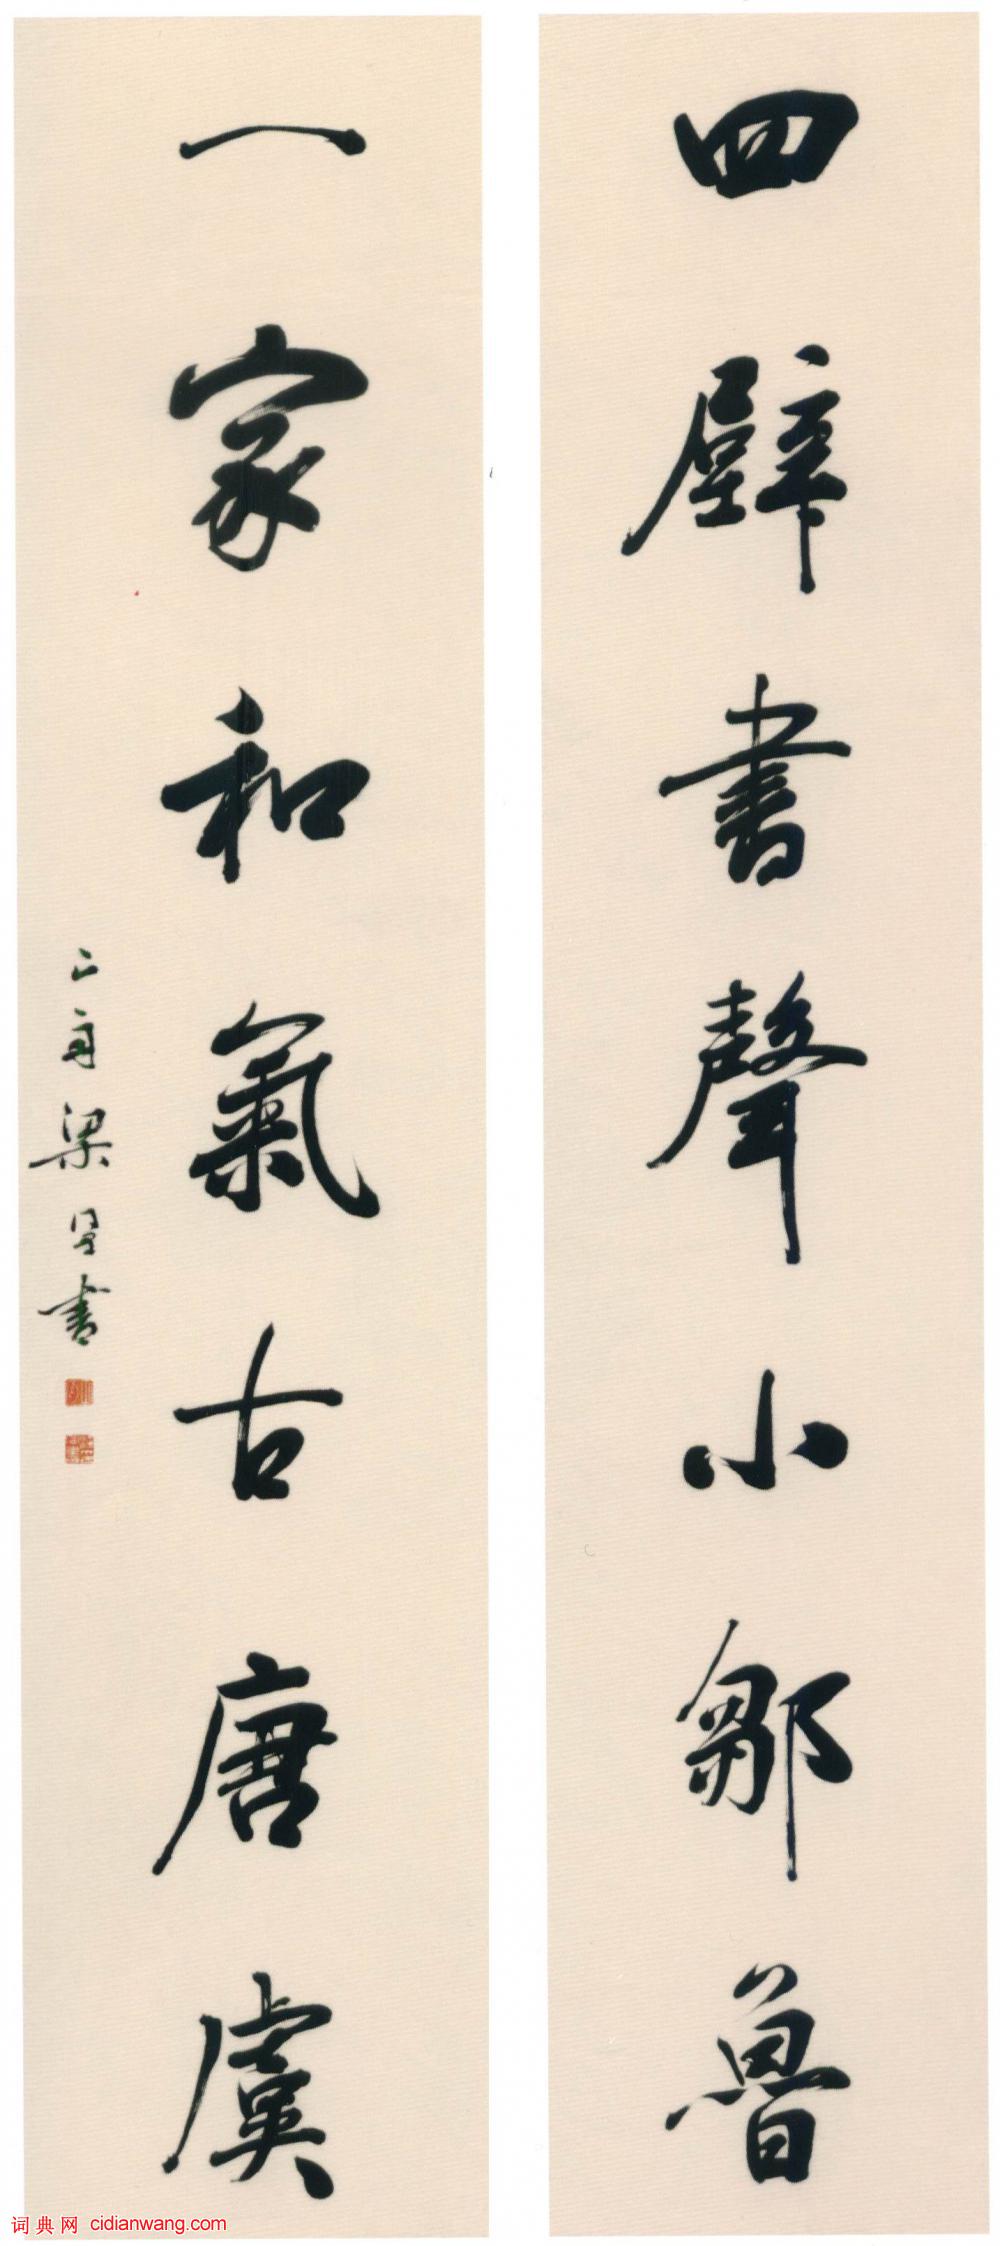 四壁書聲小鄒魯
一家和氣古唐虞
三舟梁㫒書
词典网 cidianwang.com